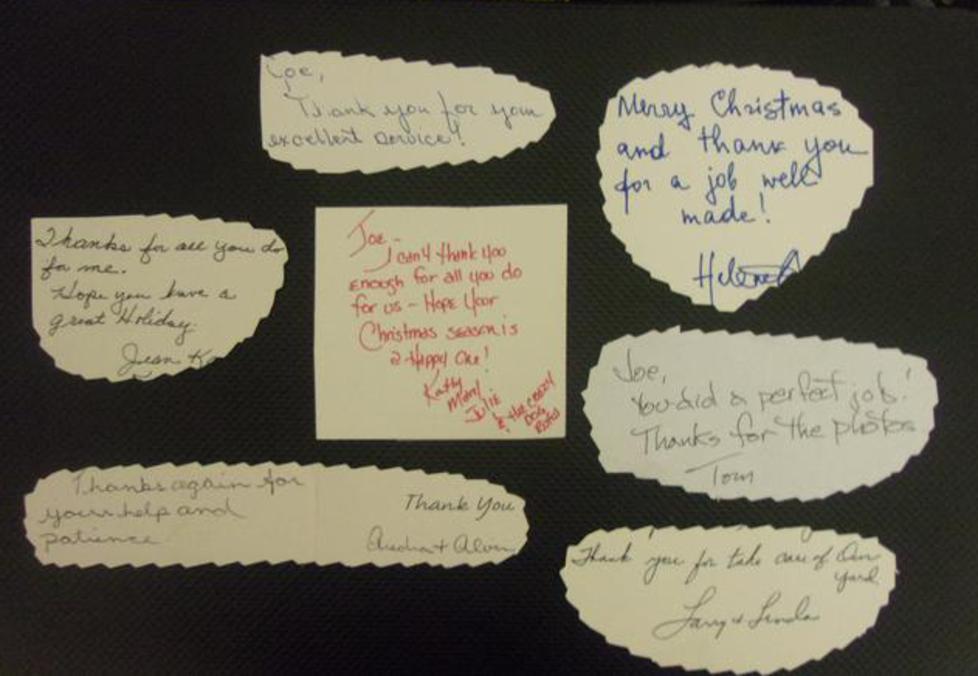 Joe,
Thank you for your
excellent service!
Merry Christmas
and thank you
for a job well
made!
Helene
Thanks for all you do
for me.
Hope you have a
great Holiday.
Jean K
Joe -
I can't thank you
enough for all you do
for us - Hope your
Christmas season is
a Happy One!
Kathy
Mary
Julie
& the crazy
DOG
Joe,
You did a perfect job!
Thanks for the photos
Tom
Thanks again for
your help and
patience
Thank You
Thank you for take care of Our
yard
Larry & Linda